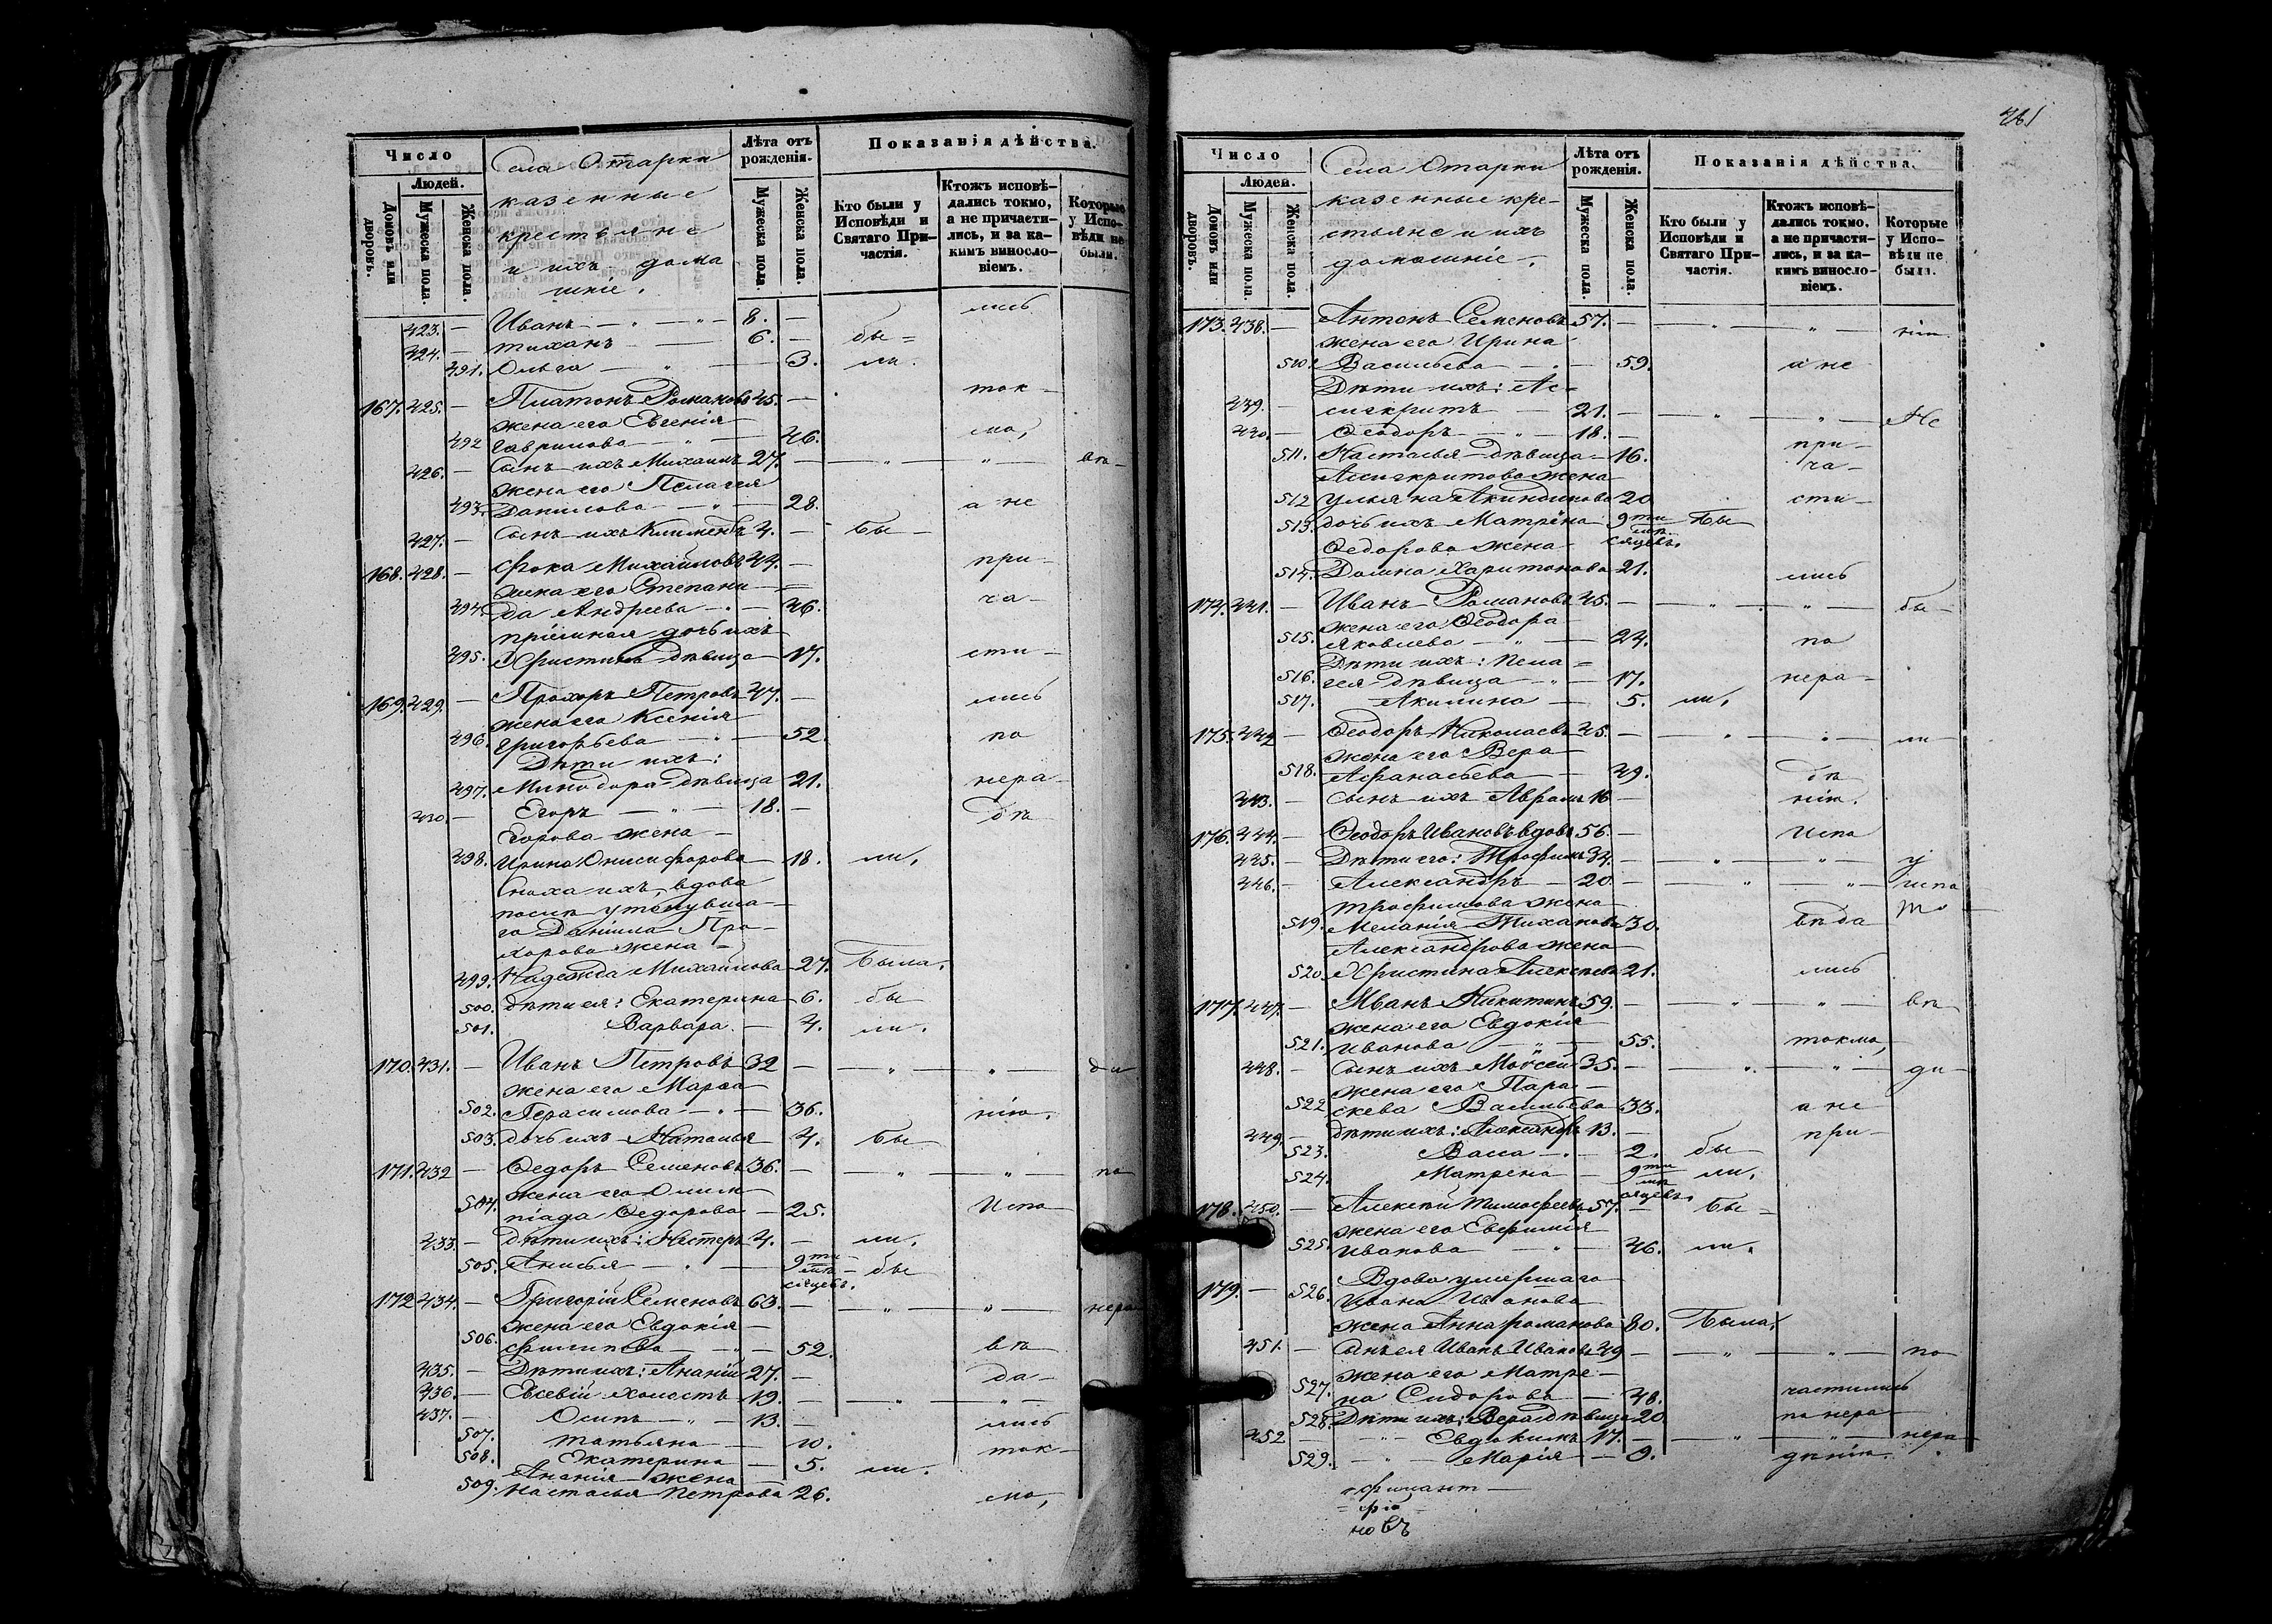 Число
Людей.
Домовъ или дворовъ.
Мужеска пола.
Женска пола.
Села Отарки
казенные
крестьяне
и ихъ дома
шніе.
Лѣта отъ рожденія.
Мужеска пола.
Женска пола.
Показанія дѣйства.
Кто были у Исповѣди и Святаго При-частія.
Ктожъ исповѣ-дались токмо, а не причасти-лись, и за ка-кимъ виносло-віемъ.
Которые у Испо-вѣди не были.
423. — Иванъ — 8. — лись
424. — Тиханъ — 6. — бы=
491. Ольга — 3. ли.
167. 425. — Платонъ Романовъ 45. — ток-
жена его Евгенія
492 Гаврилова — 46. мо,
426. — Сынъ ихъ Михаилъ 27. — вѣ-
жена его Пелагея
493. Данилова — 28. а не
427. — Сынъ ихъ Климентъ 4. — бы-
168. 428. — Фока Михайловъ 44. — при-
жена его Степани-
494. да Андреева — 46. ча-
пріемная дочь ихъ
495. Христина дѣвица — 17. сти-
169. 429. — Прохоръ Петровъ 47. — лись
жена его Ксенія
496. Григорьева — 52. по
Дѣти ихъ:
497. Минодора дѣвица 21. нера-
430. — Егоръ — 18. — дѣ
Егорова жена
498. Ирина Онисифорова 18. ли.
Сноха ихъ, вдова
послѣ утонувша-
го Даніила Про-
хорова жена =
499. Надежда Михаилова 27. Была.
500. дѣти ея: Екатерина 6. бы
501. Варвара — 4. ли.
170. 431. — Иванъ Петровъ 32 — ди
жена его Марѳа
502. Герасимова — 36. нію.
503. дочь ихъ Наталья 4. бы
171. 432 — Ѳедоръ Семеновъ 36. — по
жена его Олим
504. піада Ѳедорова — 25. Испо
433. — дѣти ихъ: Нестеръ 4. — ли.
505. Анисья — 9ти мѣсяцевъ. бы
172 434. — Григорій Семеновъ 63. — нера
жена его Евдокія
506. Филипова — 52. вѣ
435. — Дѣти ихъ: Ананій 27. — да-
436. — Евсевій холостъ 19. —
437. — Осипъ — 13. — лись
507. Татьяна — 10. ток-
508. Екатерина — 5. ли.
Ананія жена
509. Настасья Петрова 26. мо,
461
Число
Людей.
Домовъ или дворовъ.
Мужеска пола.
Женска пола.
Села Отарки
казенные кре-
стьяне и ихъ
домашніе.
Лѣта отъ рожденія.
Мужеска пола.
Женска пола.
Показанія дѣйства.
Кто были у Исповѣди и Святаго При-частія.
Ктожъ исповѣ-дались токмо, а не причасти-лись, и за ка-кимъ виносло-віемъ.
Которые у Испо-вѣди не были.
173. 438. — Антонъ Семеновъ 57. — нію.
жена его Ирина
510. Васильева — 59. а не
Дѣти ихъ: Ас-
439. — сигкритъ — 21. — Не
440. — Ѳеодоръ — 18. — при-
511. Настасья дѣвица — 16. ча-
Асигкритова жена
512 Ульяна Акиндинова 20 сти-
513. дочь ихъ Матрёна 9ти мѣсяцевъ. Бы
Ѳедорова жена
514. Домна Харитонова 21. лись
174. 441. — Иванъ Романовъ 45. — бы-
жена его Ѳеодора
515. Яковлева — 24. по
Дѣти ихъ: Пела=
516. гея дѣвица — 17. нера-
517. Акилина — 5. ли.
175. 442 — Ѳеодоръ Николаевъ 45. — ли
жена его Вера
518. Афанасьева — 49. дѣ
443. — Сынъ ихъ Аврамъ 16 — нію.
176. 444. — Ѳеодоръ Ивановъ вдовъ 56. — Испо
445. — Дѣти его: Трофимъ 34. — у
446. — Александръ — 20. — испо
Трофимова жена
519. Меланія Тиханова 30. вѣда
Александрова жена
520. Христина Алексѣева 21. лись
177. 447. — Иванъ Никитинъ 59. — вѣ
жена его Евдокія
521. Иванова — 55. токмо,
448. — Сынъ ихъ Моѵсей 35. — ди-
жена его Пара-
522 скева Васильева 33. а не
449. — дѣти ихъ: Александръ 13. — при-
523. Васса — 2. бы
524. Матрена — 9ти мѣсяцевъ. ли.
178. 450. — Алексѣй Тимофеевъ 57. — бы-
жена его Евфимія
525. Иванова — 46. ли.
179. — 526. Вдова умершаго
Ивана Иванова
жена Анна Романова 80. Была.
451. — Сынъ ея Иванъ Ивановъ 49 — по
жена его Матре-
527. на Сидорова — 48. частились
528. Дѣти ихъ: Вера дѣвица 20. по нера
452 — Евдокимъ 17. — нера-
529. Марія — 9. дѣнію.